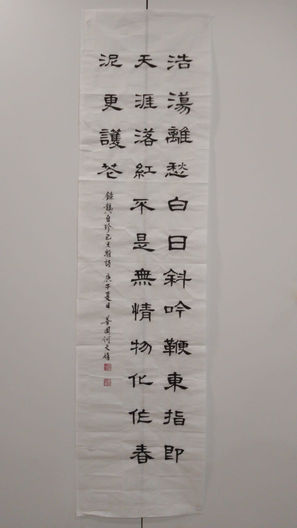 浩蕩離愁白日斜吟鞭東指即
天涯落紅不是無情物化作春
泥更護花
錄龔自珍己亥雜詩 庚午夏日